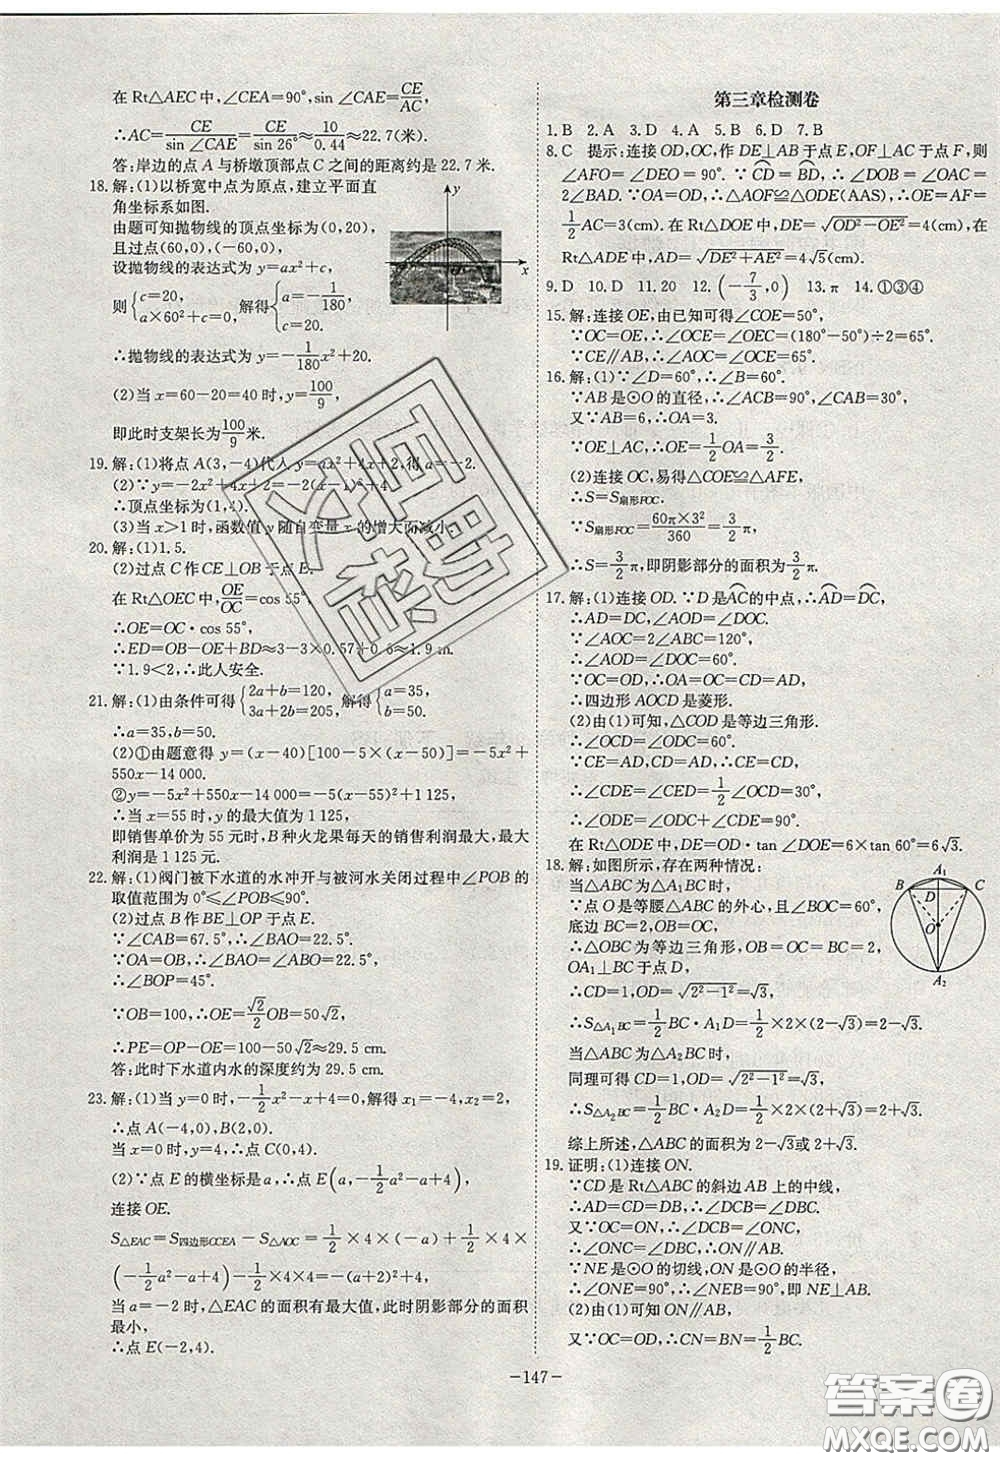 在 Rt△AEC 中,∠CEA=90°,sin ∠CAE=CE/AC,
∴AC=CE/sin ∠CAE=CE/sin 26°≈10/0.44≈22.7(米).
答:岸边的点 A 与桥墩顶部点 C 之间的距离约是 22.7 米.
18.解:(1)以桥宽中点为原点,建立平面直
角坐标系如图.
由题可知抛物线的顶点坐标为(0,20),
且过点(60,0),(-60,0).
设抛物线的表达式为 y=ax²+c,
则{c=20, a×60²+c=0, 解得{a=-1/180, c=20.
∴抛物线的表达式为 y=-1/180x²+20.
(2)当 x=60-20=40 时,y=100/9,
即此时支架长为100/9米.
19.解:(1)将点 A(3,-4)代入 y=ax²+4x+2,得 a=-2.
(2)∵y=-2x²+4x+2=-2(x-1)²+4,
∴顶点坐标为(1,4).
(3)当 x>1 时,函数值 y 随自变量 x 的增大而减小.
20.解:(1)1.5.
(2)过点 C 作 CE⊥OB 于点 E.
在 Rt△OEC 中,OE/OC=cos 55°,
∴OE=OC·cos 55°,
∴ED=OB-OE+BD≈3-3×0.6+0.6≈1.9 m.
∵1.9<2,∴此人安全.
21.解:(1)由条件可得{2a+b=120, 3a+2b=205, 解得{a=35, b=50.
∴a=35,b=50.
(2)①由题意得 y=(x-40)[100-5×(x-50)]=-5x²+
550x-14 000.
②y=-5x²+550x-14 000=-5(x-55)²+1 125,
∴当 x=55 时,y 的最大值为 1 125,
即销售单价为 55 元时,B 种火龙果每天的销售利润最大,最大
利润是 1 125 元.
22.解:(1)阀门被下水道的水冲开与被河水关闭过程中∠POB 的
取值范围为 0°≤∠POB≤90°.
(2)过点 B 作 BE⊥OP 于点 E.
∵∠CAB=67.5°,∴∠BAO=22.5°.
∵OA=OB,∴∠BAO=∠ABO=22.5°,
∴∠BOP=45°.
∵OB=100,∴OE=√2/2OB=50√2,
∴PE=OP-OE=100-50√2≈29.5 cm.
答:此时下水道内水的深度约为 29.5 cm.
23.解:(1)当 y=0 时,-1/2x²-x+4=0,解得 x₁=-4,x₂=2,
∴点 A(-4,0),B(2,0).
当 x=0 时,y=4,∴点 C(0,4).
(2)∵点 E 的横坐标是 a,∴点 E(a,-1/2a²-a+4),
连接 OE.
S△EAC=S四边形OCEA-S△AOC=1/2×4×(-a)+1/2×4×
(-1/2a²-a+4)-1/2×4×4=-(a+2)²+4,
当 a=-2 时,△EAC 的面积有最大值,此时阴影部分的面积
最小,
∴点 E(-2,4).
y
x
第三章检测卷
1.B 2.A 3.D 4.A 5.B 6.D 7.B
8.C 提示:连接 OD,OC,作 DE⊥AB 于点 E,OF⊥AC 于点 F,则
∠AFO=∠DEO=90°. ∵CD=BD,∴∠DOB=∠OAC=
2∠BAD. ∵OA=OD,∴△AOF≌△ODE(AAS),∴OE=AF=
1/2AC=3(cm). 在 Rt△DOE 中,DE=√OD²-OE²=4(cm),在
Rt△ADE 中,AD=√DE²+AE²=4√5(cm).
9.D 10.D 11.20 12.(-7/3,0) 13.π 14.①③④
15.解:连接 OE,由已知可得∠COE=50°,
∵OC=OE,∴∠OCE=∠OEC=(180°-50°)÷2=65°.
∵CE∥AB,∴∠AOC=∠OCE=65°.
16.解:(1)∵∠D=60°,∴∠B=60°.
∵AB 是⊙O 的直径,∴∠ACB=90°,∠CAB=30°,
又∵AB=6,∴OA=3.
∵OE⊥AC,∴OE=1/2OA=3/2.
(2)连接 OC,易得△COE≌△AFE,
∴S=S扇形FOC.
∵S扇形FOC=60π×3²/360=3/2π,
∴S=3/2π,即阴影部分的面积为3/2π.
17.解:(1)连接 OD. ∵D 是AC的中点,∴AD=DC,
∴AD=DC,∠AOD=∠DOC.
∵∠AOC=2∠ABC=120°,
∴∠AOD=∠DOC=60°.
∵OC=OD,∴OA=OC=CD=AD,
∴四边形 AOCD 是菱形.
(2)由(1)可知,△COD 是等边三角形.
∴∠OCD=∠ODC=60°.
∵CE=AD,CD=AD,∴CE=CD,
∴∠CDE=∠CED=1/2∠OCD=30°,
∴∠ODE=∠ODC+∠CDE=90°.
在 Rt△ODE 中,DE=OD·tan ∠DOE=6×tan 60°=6√3.
18.解:如图所示,存在两种情况:
当△ABC 为△A₁BC 时,
∵点 O 是等腰△ABC 的外心,且∠BOC=60°,
底边 BC=2,OB=OC,
∴△OBC 为等边三角形,OB=OC=BC=2,
OA₁⊥BC 于点 D,
∴CD=1,OD=√2²-1²=√3,
∴S△A₁BC=1/2BC·A₁D=1/2×2×(2-√3)=2-√3.
当△ABC 为△A₂BC 时,
同理可得 CD=1,OD=√2²-1²=√3,
∴S△A₂BC=1/2BC·A₂D=1/2×2×(2+√3)=2+√3.
综上所述,△ABC 的面积为 2-√3或 2+√3.
19.证明:(1)连接 ON.
∵CD 是 Rt△ABC 的斜边 AB 上的中线,
∴AD=CD=DB,∴∠DCB=∠DBC.
又∵OC=ON,∴∠DCB=∠ONC,
∴∠ONC=∠DBC,∴ON∥AB.
∵NE 是⊙O 的切线,ON 是⊙O 的半径,
∴∠ONE=90°,∴∠NEB=90°,即 NE⊥AB.
(2)由(1)可知 ON∥AB,
又∵OC=OD,∴CN=BN=1/2BC.
A₁
B
D
C
O
A₂
-147-
答案卷
MXQE.COM